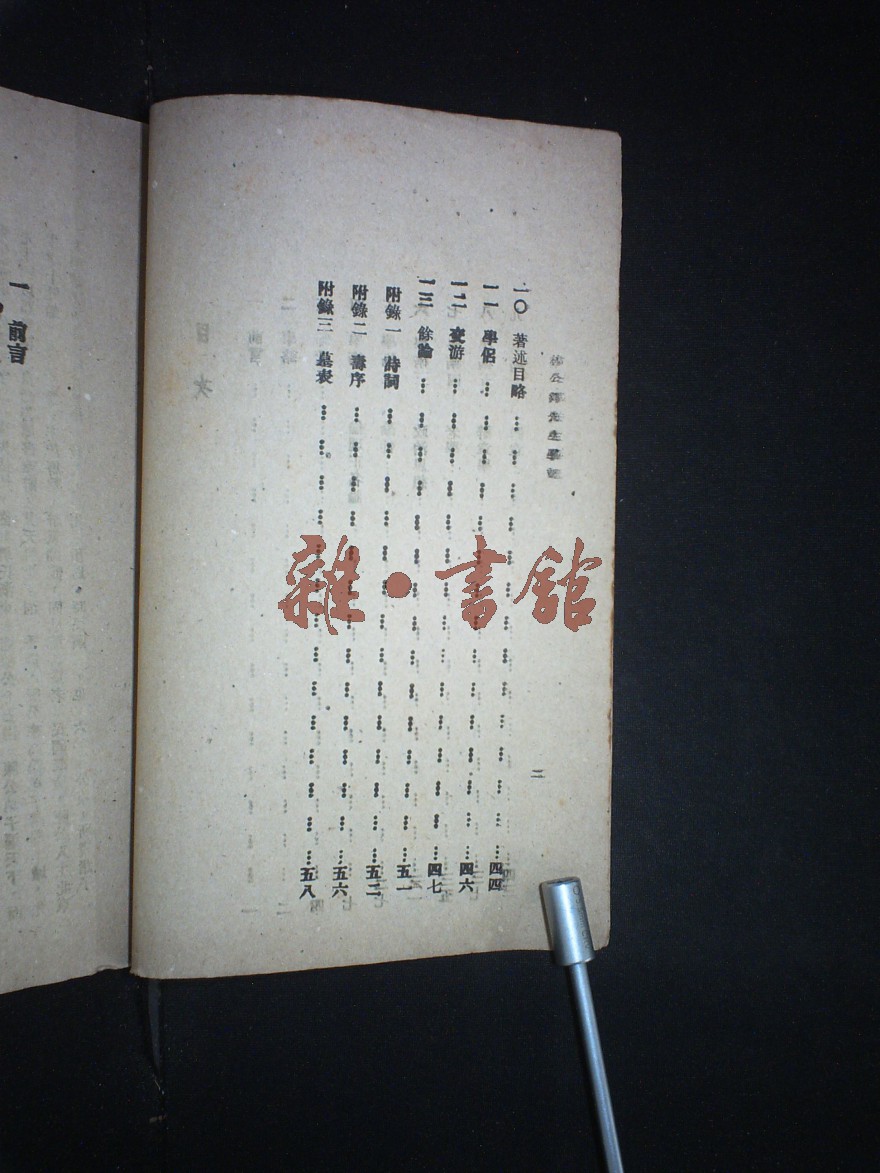 林公鐸先生學記
二
一〇 著述目略 ………………………… 四四
一一 學侶 ………………………… 四六
一二 交游 ………………………… 四七
一三 餘論 ………………………… 五一
附錄一 詩詞 ………………………… 五二
附錄二 壽序 ………………………… 五六
附錄三 墓表 ………………………… 五八
一 前言
雜•書館